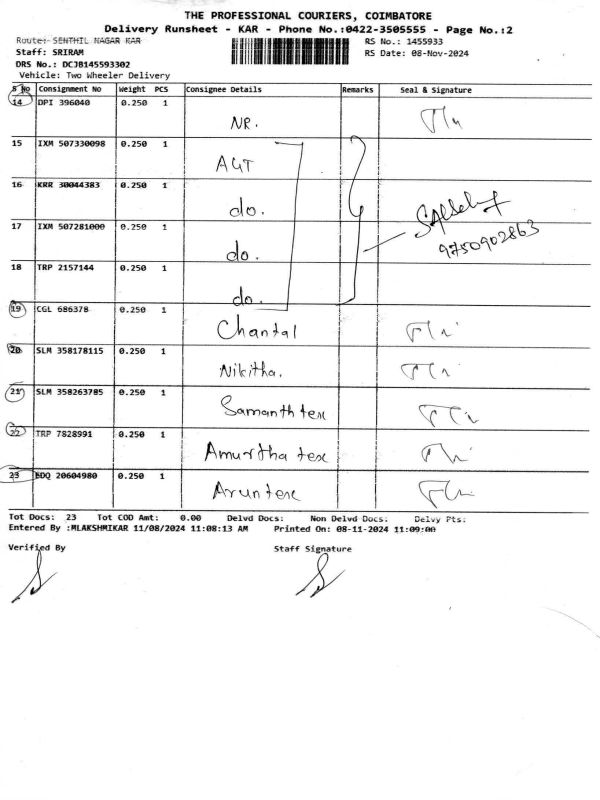 THE PROFESSIONAL COURIERS, COIMBATORE
Delivery Runsheet - KAR - Phone No.:0422-3505555 - Page No.:2
Route: SENTHIL NAGAR KAR
RS No.: 1455933
Staff: SRIRAM
RS Date: 08-Nov-2024
DRS No.: DCJB145593302
Vehicle: Two Wheeler Delivery
S No Consignment No Weight PCS Consignee Details Remarks Seal & Signature
14 DPI 396040 0.250 1 NR.
15 IXM 507330098 0.250 1 AGT
16 KRR 30044383 0.250 1 do.
9750902863
17 IXM 507281000 0.250 1 do.
18 TRP 2157144 0.250 1 do.
19 CGL 686378 0.250 1 Chantal
20 SLM 358178115 0.250 1 Nikitha.
21 SLM 358263785 0.250 1 Samanth tex
22 TRP 7828991 0.250 1 Amurtha tex
23 EDQ 20604980 0.250 1 Arun tex
Tot Docs: 23 Tot COD Amt: 0.00 Delvd Docs: Non Delvd Docs: Delvy Pts:
Entered By :MLAKSHMIKAR 11/08/2024 11:08:13 AM Printed On: 08-11-2024 11:09:00
Verified By Staff Signature